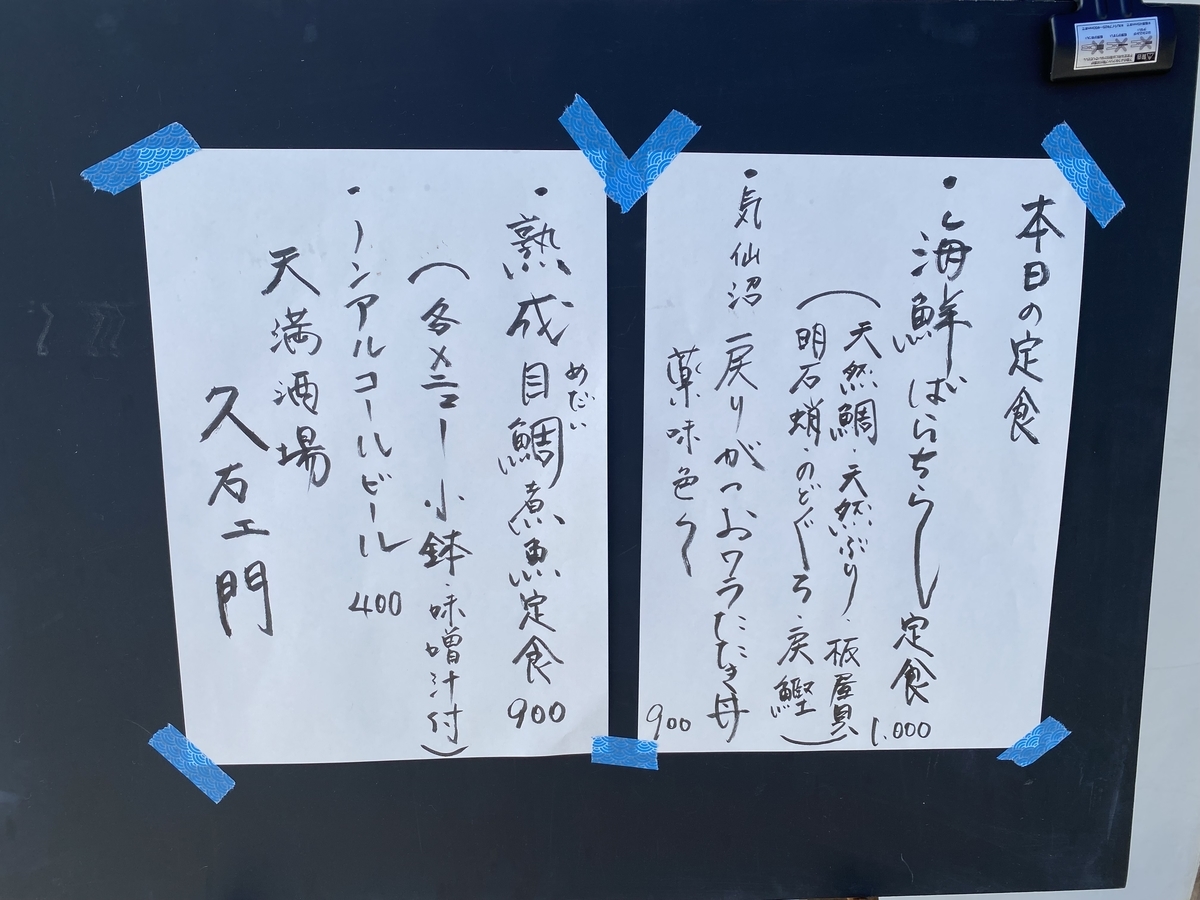 本日の定食
・海鮮ばらちらし定食 1.000
(天然鯛・天然ぶり・板屋貝
明石蛸・のどぐろ・戻鰹)
・気仙沼 戻りがつおワラたたき丼
薬味色々 900
・熟成目鯛煮魚定食 900
めだい
(各メニュー 小鉢・味噌汁付)
・ノンアルコールビール 400
天満酒場
久右エ門